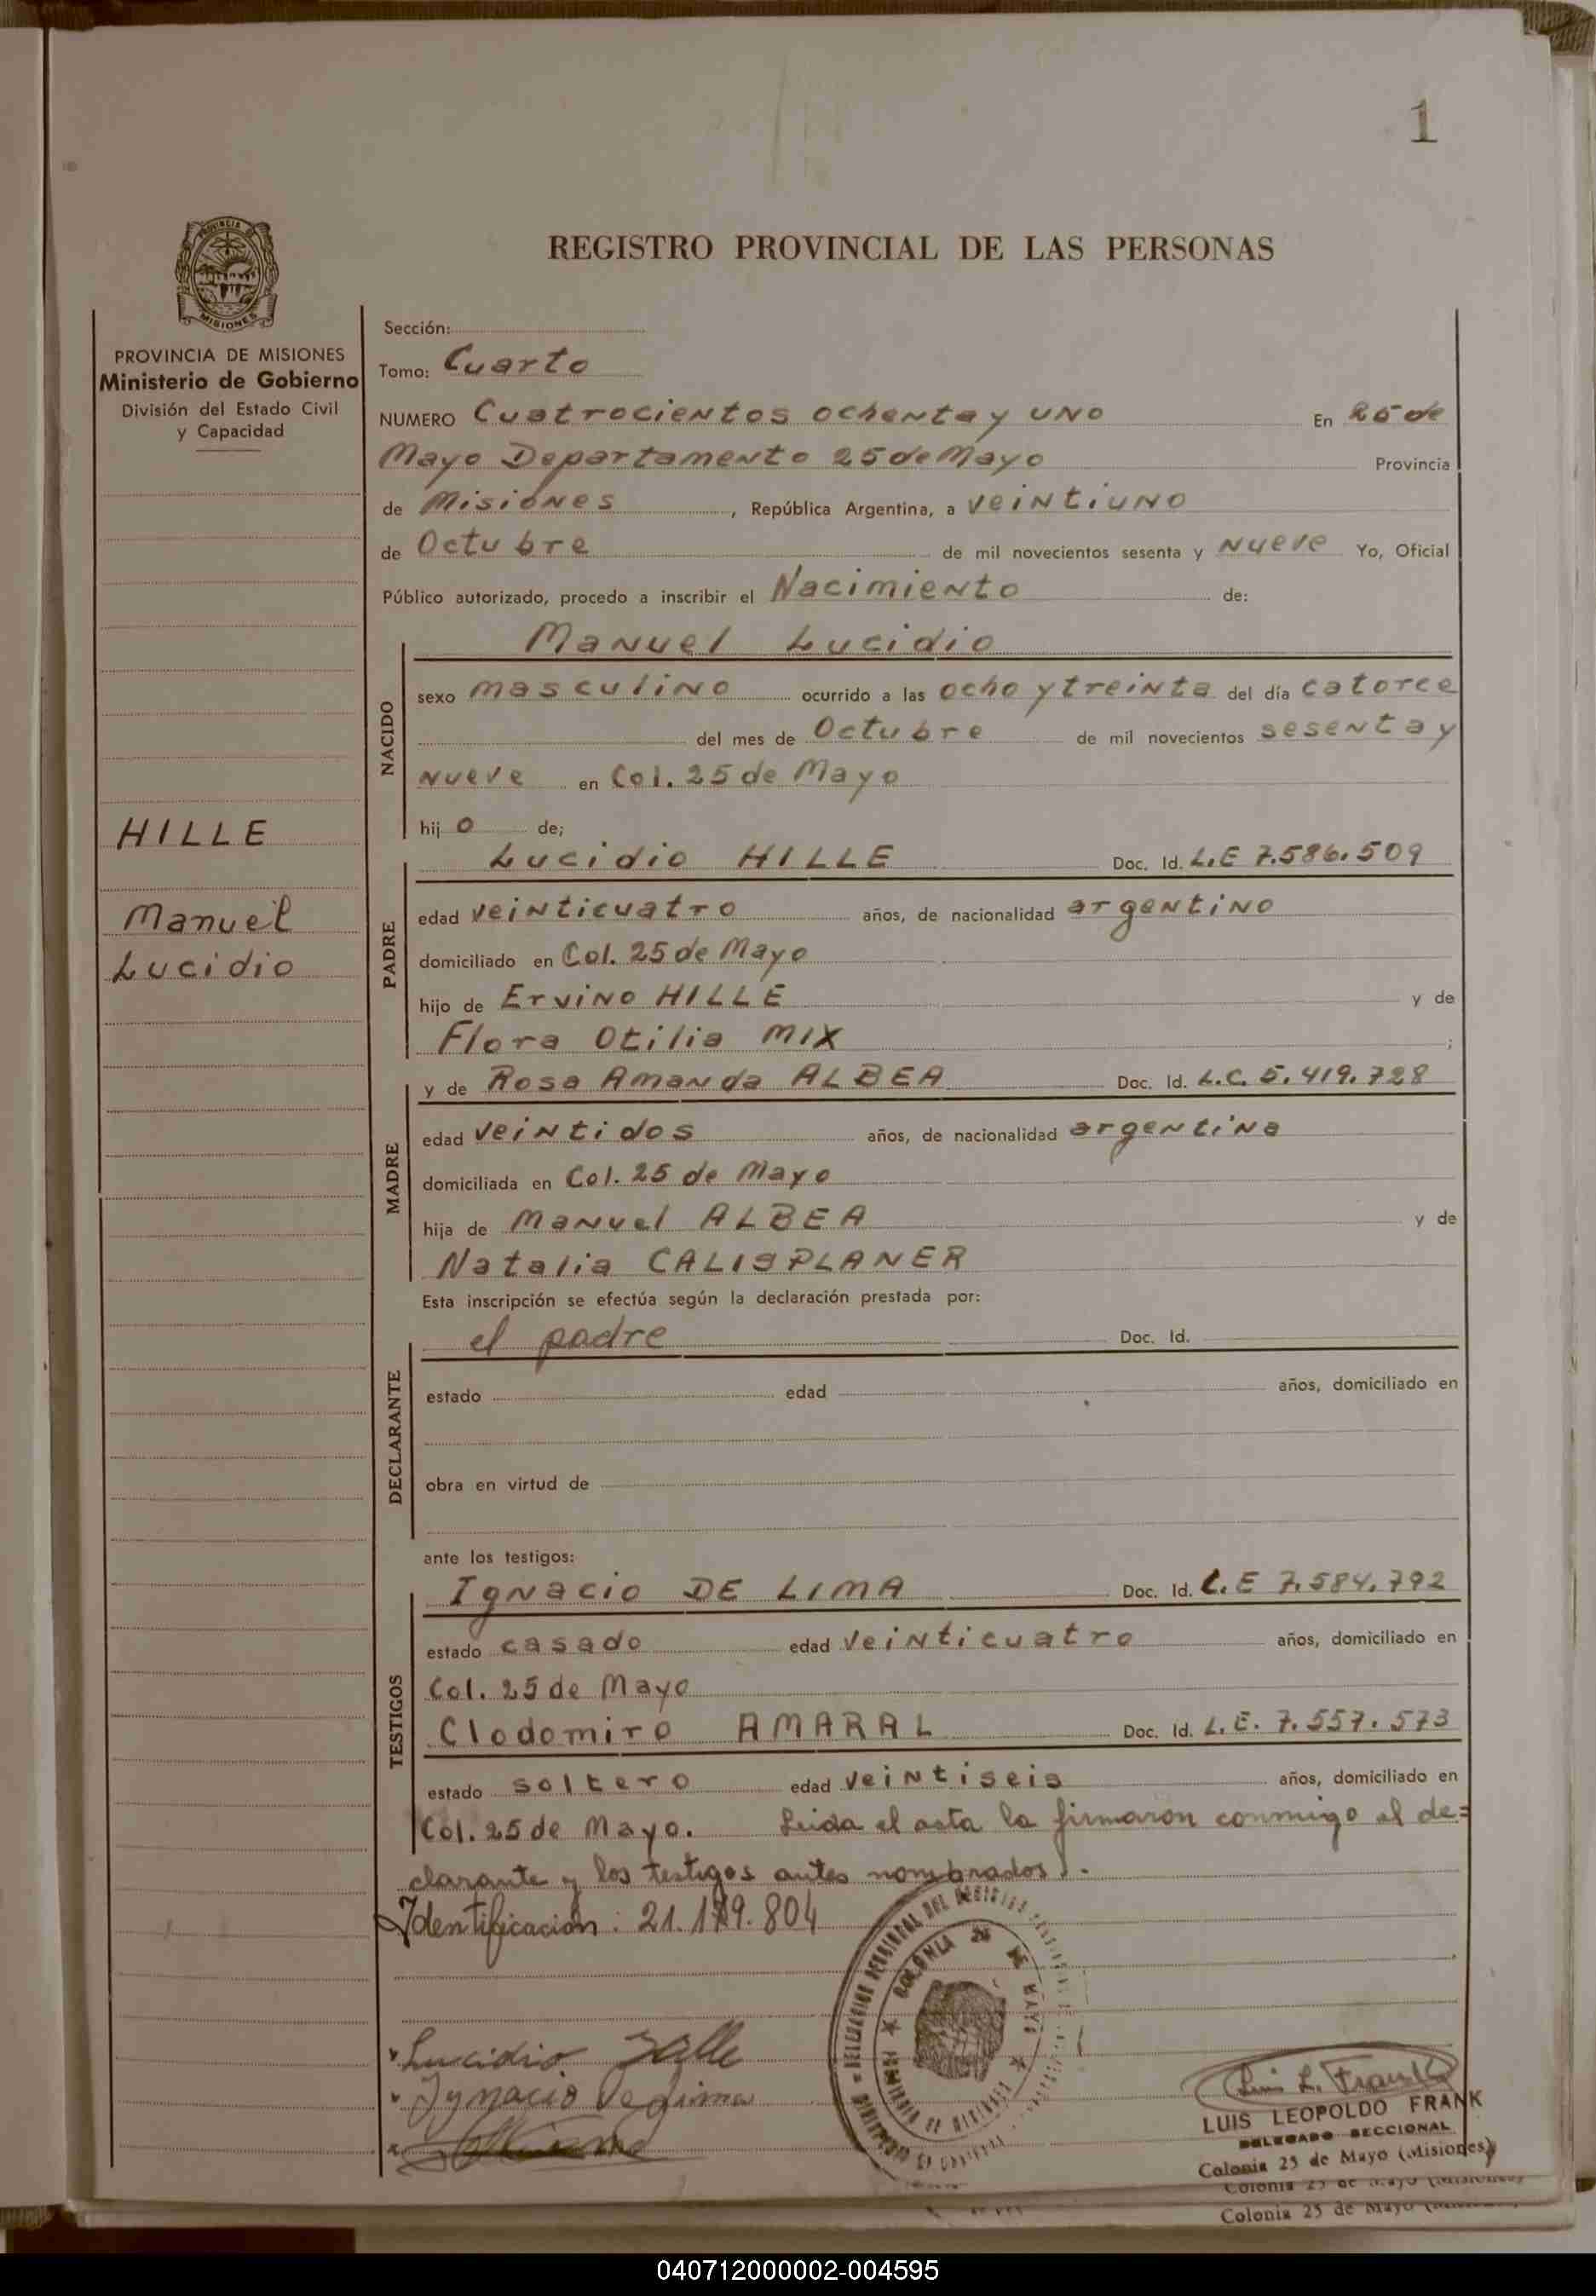 1
REGISTRO PROVINCIAL DE LAS PERSONAS
PROVINCIA DE MISIONES
Ministerio de Gobierno
División del Estado Civil
y Capacidad
HILLE
Manuel
Lucidio
Sección:
Tomo: Cuarto
NUMERO Cuatrocientos ochenta y uno En 25 de
Mayo Departamento 25 de Mayo Provincia
de Misiones, República Argentina, a veintiuno
de Octubre de mil novecientos sesenta y nueve Yo, Oficial
Público autorizado, procedo a inscribir el Nacimiento de:
Manuel Lucidio
NACIDO
sexo masculino ocurrido a las ocho y treinta del día catorce
del mes de Octubre de mil novecientos sesenta y
nueve en Col. 25 de Mayo
hijo de;
Lucidio HILLE Doc. Id. L.E 7.586.509
PADRE
edad veinticuatro años, de nacionalidad argentino
domiciliado en Col. 25 de Mayo
hijo de Ervino HILLE y de
Flora Otilia MIX ;
y de Rosa Amanda ALBEA Doc. Id. L.C. 5.419.728
MADRE
edad veintidos años, de nacionalidad argentina
domiciliada en Col. 25 de Mayo
hija de Manuel ALBEA y de
Natalia CALISPLANER
Esta inscripción se efectúa según la declaración prestada por:
el padre Doc. Id.
DECLARANTE
estado edad años, domiciliado en
obra en virtud de
ante los testigos:
Ignacio DE LIMA Doc. Id. L.E 7.584.792
TESTIGOS
estado casado edad veinticuatro años, domiciliado en
Col. 25 de Mayo
Clodomiro AMARAL Doc. Id. L.E. 7.557.573
estado soltero edad veintiseis años, domiciliado en
Col. 25 de Mayo. Leida el acta la firmaron conmigo el de=
clarante y los testigos antes nombrados.
Identificación: 21.179.804
COLONIA 25 DE MAYO
PROVINCIA DE MISIONES
Lucidio Hille
Ignacio De Lima
Luis L. Frank
LUIS LEOPOLDO FRANK
DELEGADO SECCIONAL
Colonia 25 de Mayo (Misiones)
Colonia 25 de Mayo (Misiones)
Colonia 25 de Mayo
040712000002-004595